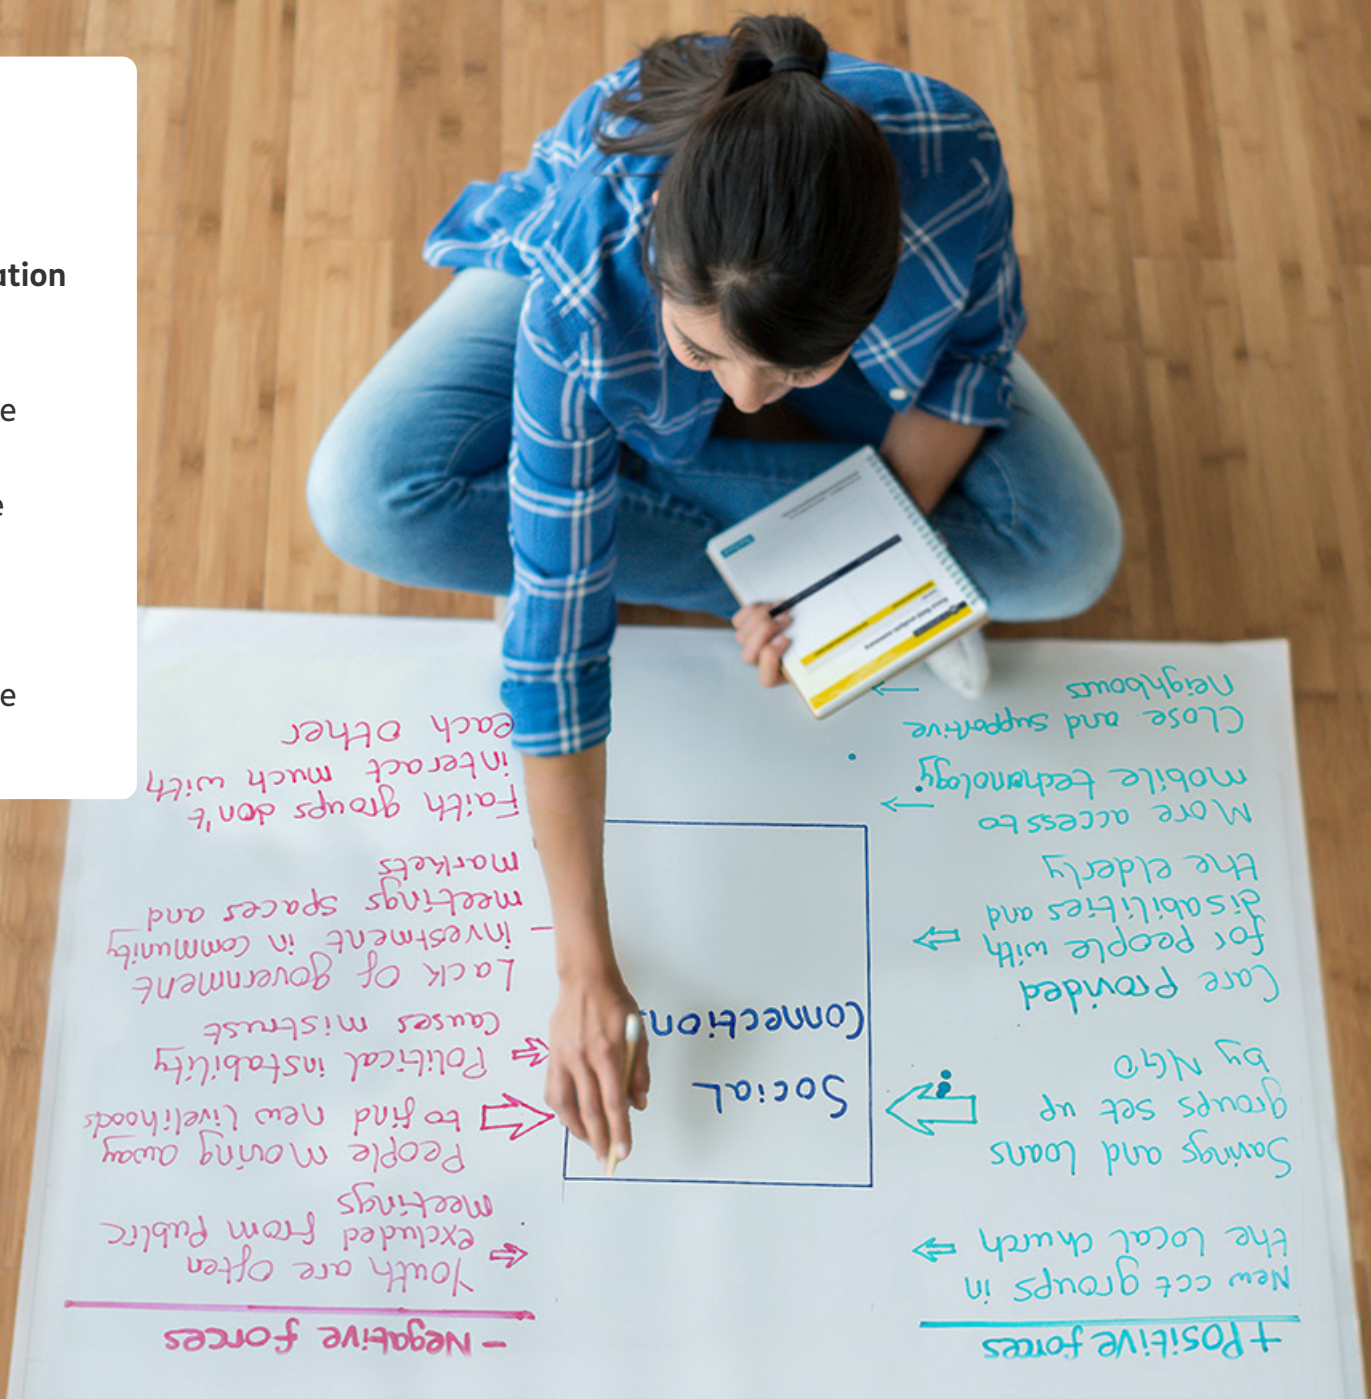 ation
e
e
e
+ Positive forces
New cct groups in
the local church
Savings and Loans
groups set up
by NGO
Care Provided
for people with
disabilities and
the elderly
More access to
mobile techonology
Close and supportive
neighbours
Social
Connection
- Negative forces
Youth are often
excluded from Public
meetings
People moving away
to find new livelihoods
Political instability
causes mistrust
Lack of government
investment in community
meetings spaces and
markets
Faith groups don't
interact much with
each other